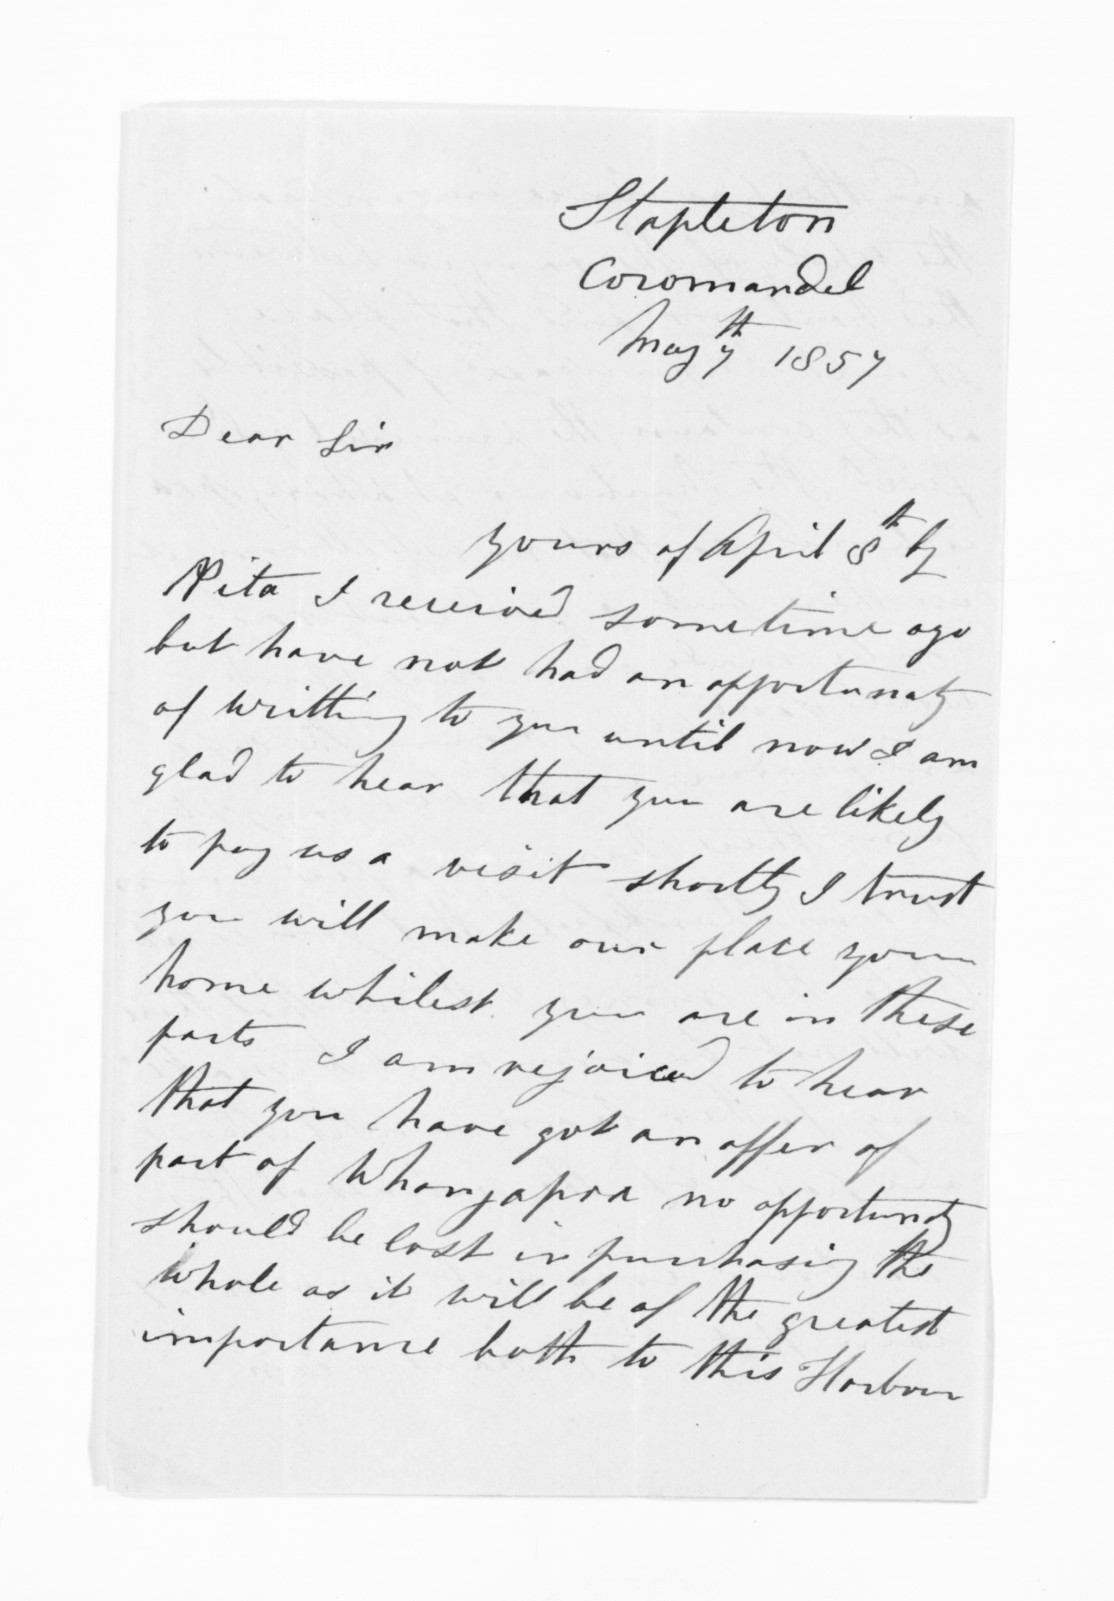 Stapleton
Coromandel
May 7th 1857
Dear Sir
yours of April 8th by
Pita I received sometime ago
but have not had an opportunaty
of writting to you until now I am
glad to hear that you are likely
to pay us a visit shortly I trust
you will make our place your
home whilest you are in these
parts I am rejoiced to hear
that you have got an offer of
part of Whangapoa no opportunaty
should be lost in purchasing the
whole as it will be of the greatest
importance both to this Harbour